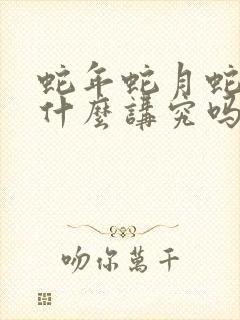 蛇年蛇月蛇
什麼講究吗
吻你萬千